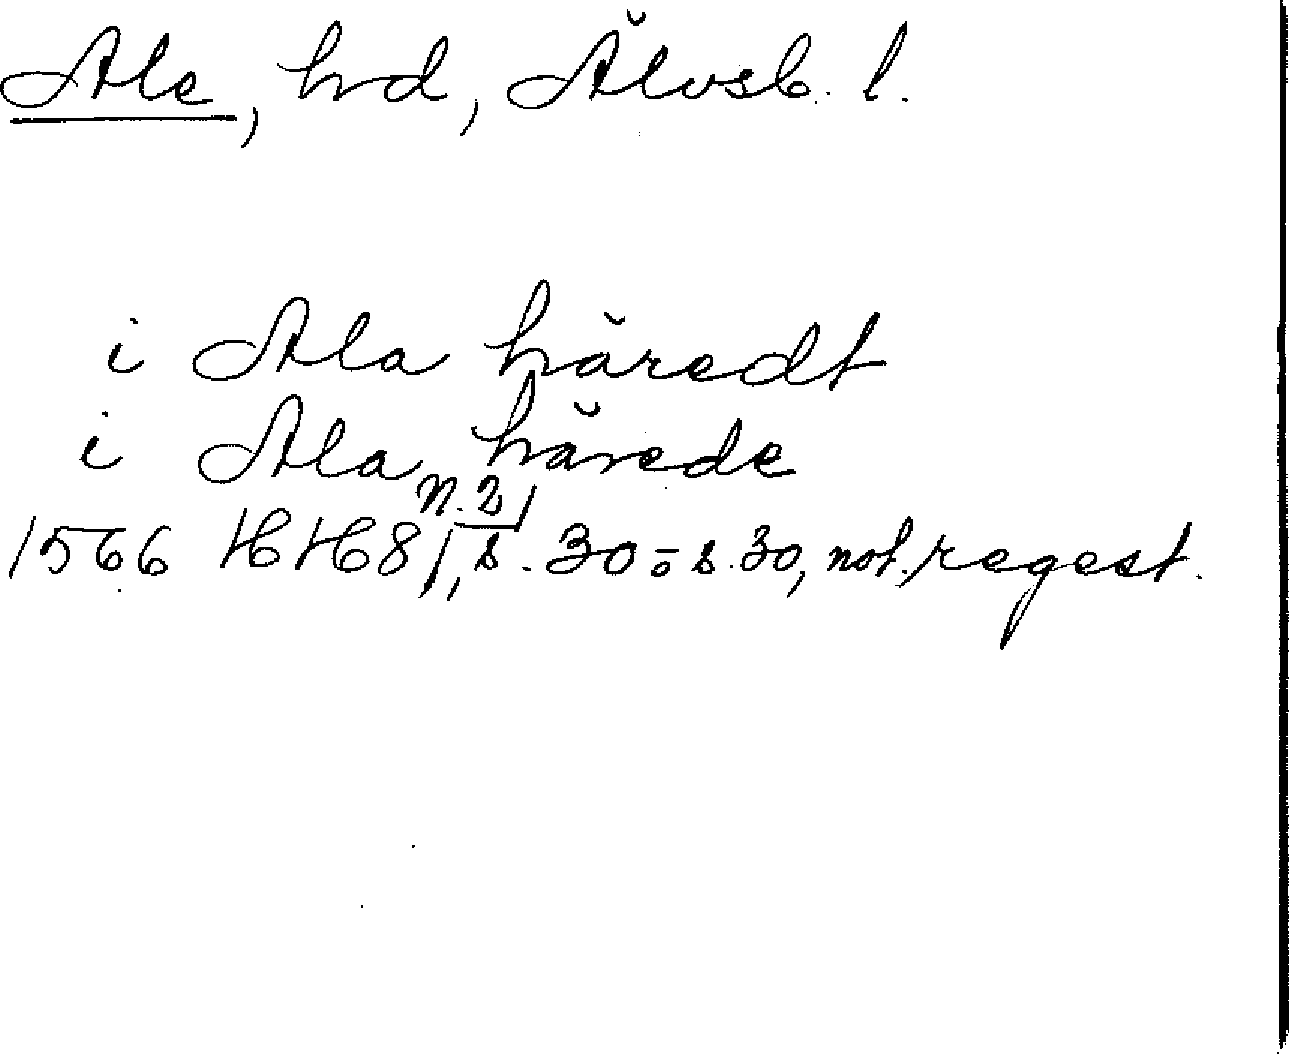 Ale, hrd, Älvsb. l.
i Ala häredt
i Ala härede
1566 HH 8, n. 2, s. 30 o s. 30, not. regest.